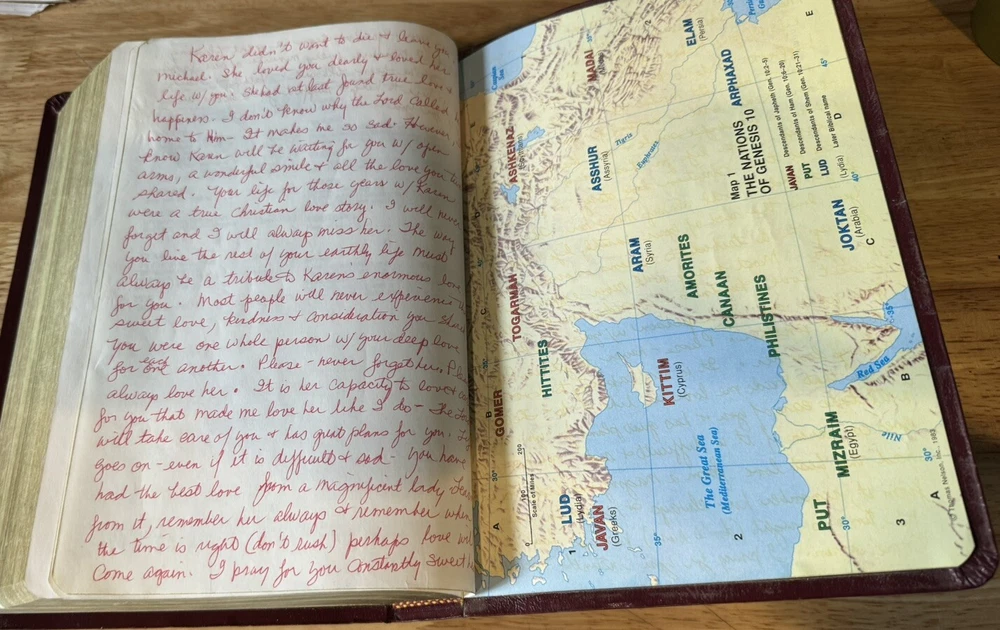 Karen didn't want to die & leave you
Michael. She loved you dearly & loved her
life w/ you. She had at last found true love &
happiness. I don't know why the Lord called
home to Him - It makes me so sad. However
know Karen will be waiting for you w/ open
arms, a wonderful smile & all the love you
shared. Your life for those years w/ Karen
were a true Christian love story. I will never
forget and I will always miss her. The way
you live the rest of your earthly life must
always be a tribute to Karens enormous love
for you. Most people will never experience
sweet love, kindness & consideration you
You were one whole person w/ your deep love
for each another. Please - never forget her.
always love her. It is her capacity to love
for you that made me love her like I do - The
will take care of you & has great plans for you.
goes on - even if it is difficult & sad - you have
had the best love from a magnificent lady
from it, remember her always & remember when
the time is right (don't rush) perhaps love
come again. I pray for you constantly sweet
Map 1
THE NATIONS
OF GENESIS 10
JAVAN Descendants of Japheth (Gen. 10:2-5)
PUT Descendants of Ham (Gen. 10:6-20)
LUD Descendants of Shem (Gen. 10:21-31)
(Lydia) Later Biblical name
Caspian
Sea
MADAI
ELAM
(Persia)
Persian
ARPHAXAD
ASHKENAZ
ASSHUR
(Assyria)
Tigris
Euphrates
TOGARMAH
ARAM
(Syria)
AMORITES
CANAAN
PHILISTINES
JOKTAN
(Arabia)
HITTITES
GOMER
KITTIM
(Cyprus)
Red Sea
The Great Sea
(Mediterranean Sea)
MIZRAIM
(Egypt)
Nile
LUD
(Lydia)
JAVAN
(Greeks)
PUT
Scale of Miles
0
200
A
B
C
D
E
1
2
3
30°
35°
40°
45°
Thomas Nelson, Inc. 1983